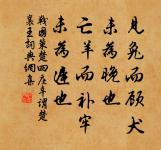 見兔而顧犬
未為晚也
亡羊而補牢
未為遲也
戰國策楚四庄辛謂楚
襄王詞典網集